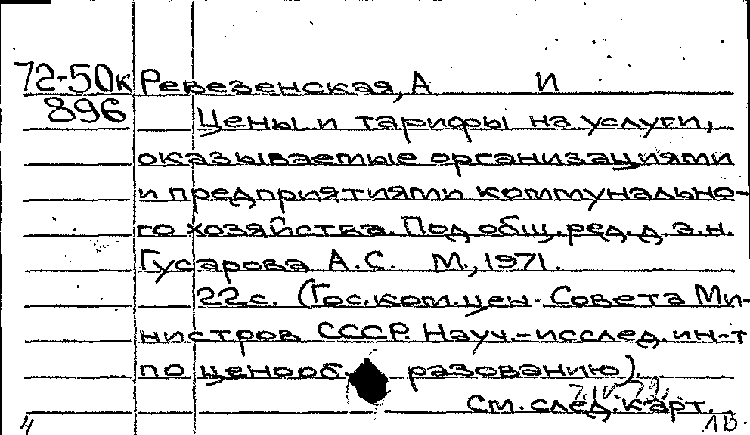 72-50к Ревезенская, А И
896 Цены и тарифы на услуги,
оказываемые организациями
и предприятиями коммунально-
го хозяйства. Под общ. ред. д.э.н.
Гусарова А.С. М., 1971.
22с. (Гос. ком. цен. Совета Ми-
нистров СССР. Науч.-исслед. ин-т
по ценооб разованию).
см. след. карт.
4